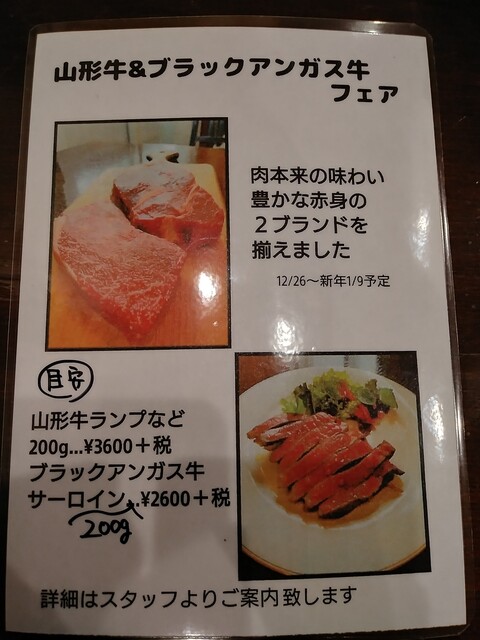 山形牛&ブラックアンガス牛
フェア
肉本来の味わい
豊かな赤身の
２ブランドを
揃えました
12/26～新年1/9予定
目安
山形牛ランプなど
200g...¥3600＋税
ブラックアンガス牛
サーロイン...¥2600＋税
200g
詳細はスタッフよりご案内致します